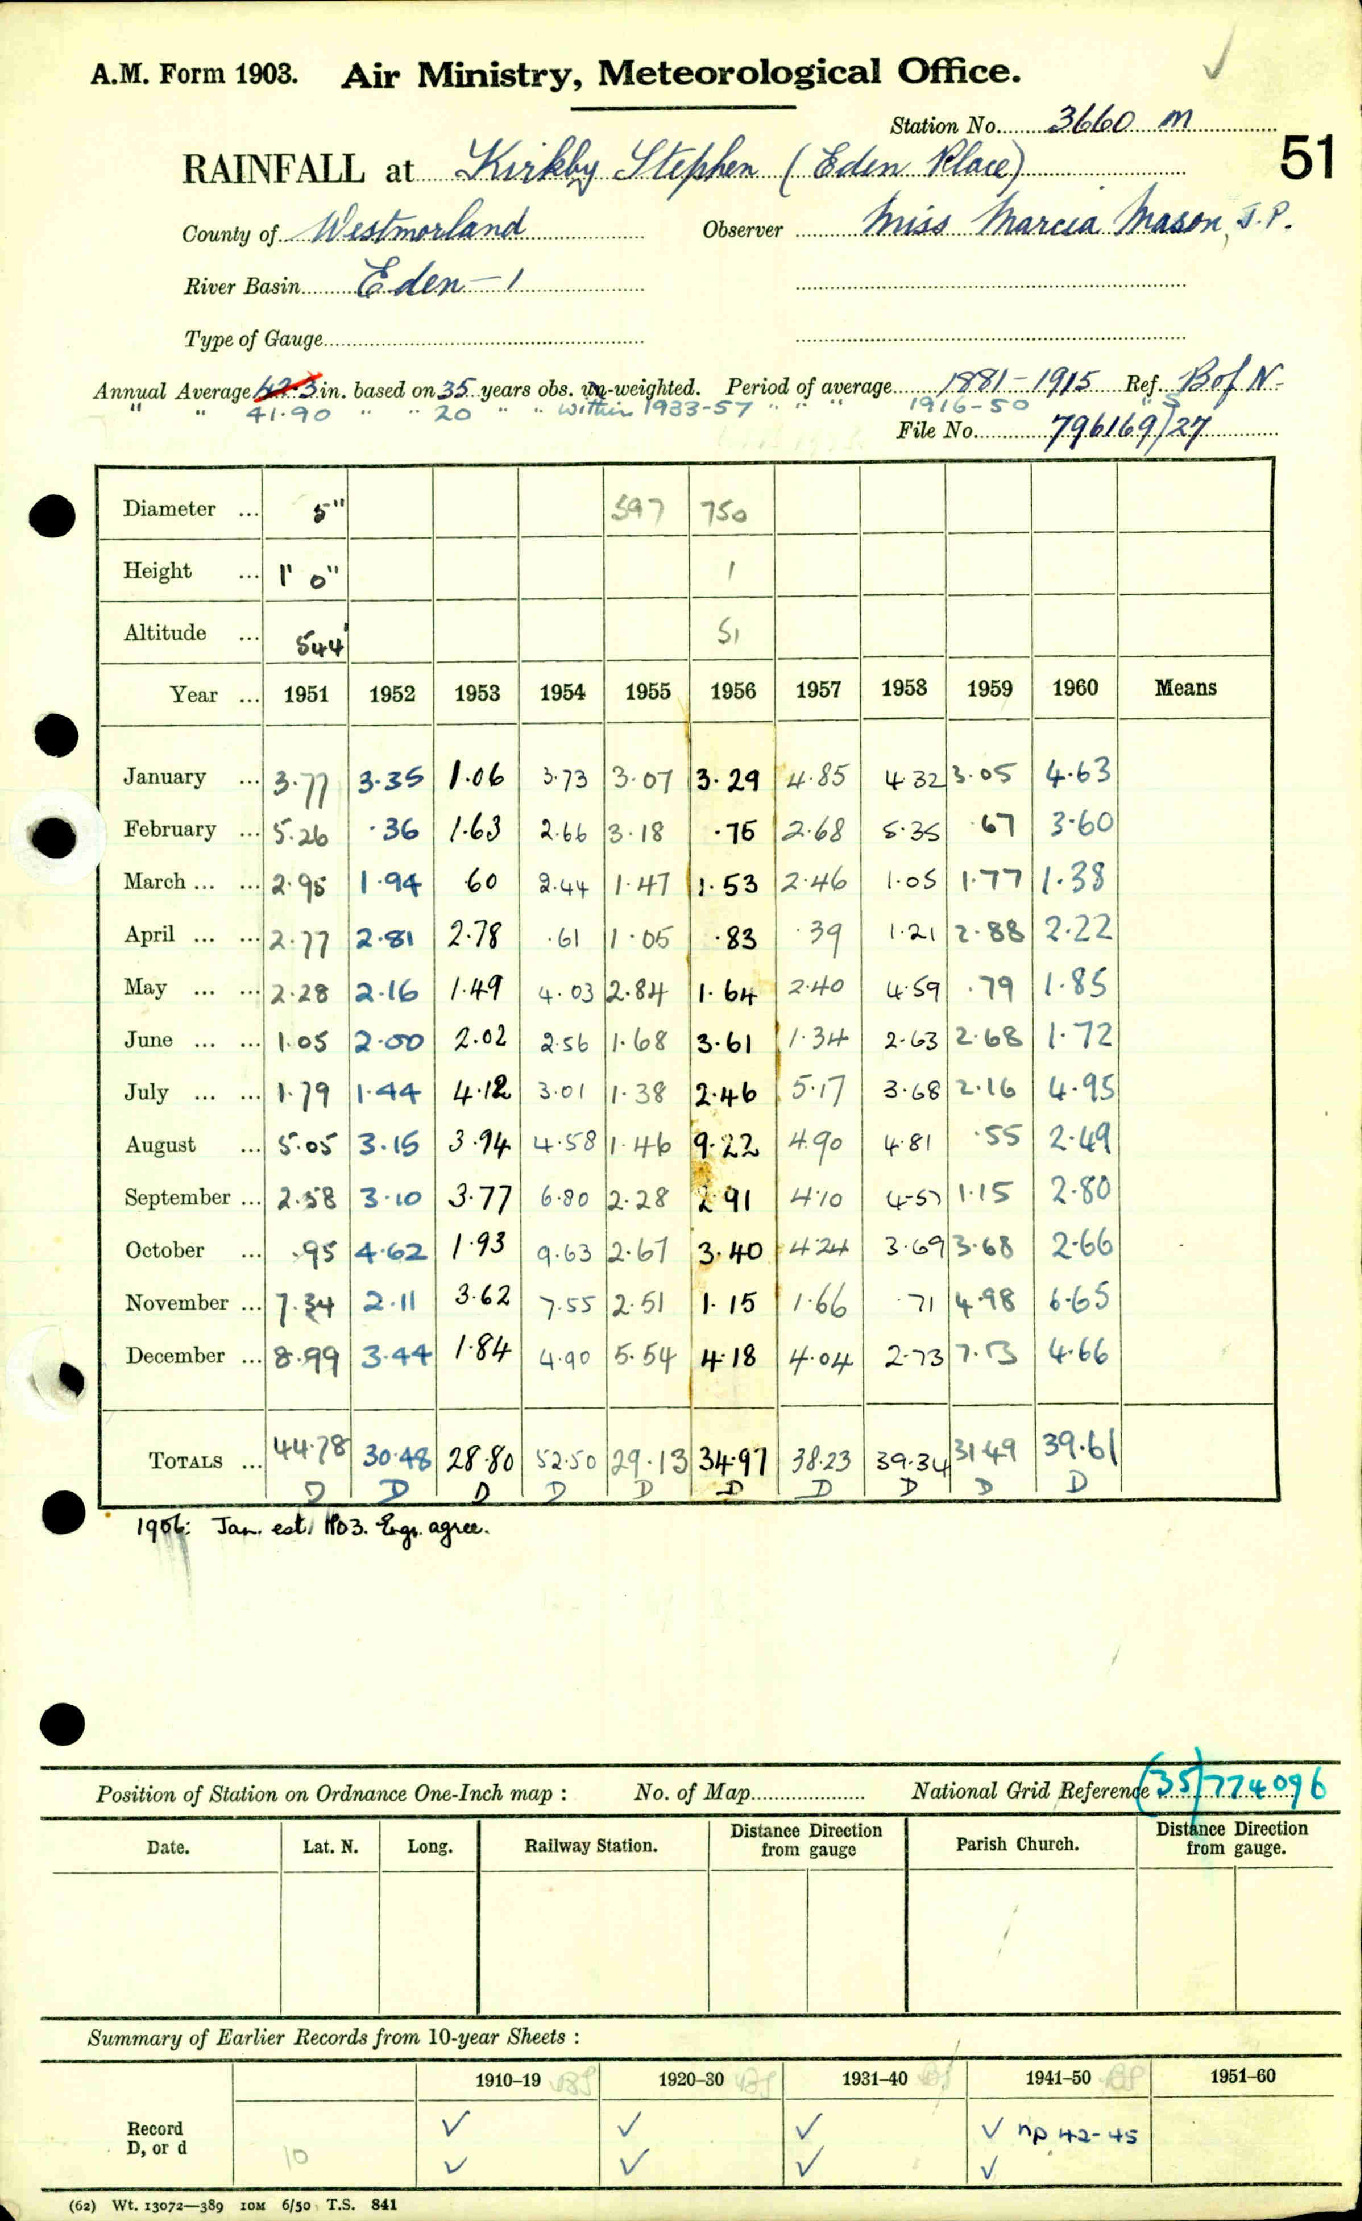 A.M. Form 1903. Air Ministry, Meteorological Office.
Station No. 3660 m
51
RAINFALL at Kirkby Stephen (Eden Place)
County of Westmorland Observer Miss Marcia Mason, J.P.
River Basin Eden - 1
Type of Gauge
Annual Average 42.3 in. based on 35 years obs. un-weighted. Period of average 1881-1915 Ref. B of N-
" " 41.90 " " 20 " " within 1933-57 " " " 1916-50 " S
File No. 796169/27
Diameter ... 5" 597 750
Height ... 1' 0" 1
Altitude ... 544' 51
Year ... 1951 1952 1953 1954 1955 1956 1957 1958 1959 1960 Means
January ... 3.77 3.35 1.06 3.73 3.07 3.29 4.85 4.32 3.05 4.63
February ... 5.26 .36 1.63 2.66 3.18 .75 2.68 5.35 .67 3.60
March ... ... 2.95 1.94 60 2.44 1.47 1.53 2.46 1.05 1.77 1.38
April ... ... 2.77 2.81 2.78 .61 1.05 .83 .39 1.21 2.88 2.22
May ... ... 2.28 2.16 1.49 4.03 2.84 1.64 2.40 4.59 .79 1.85
June ... ... 1.05 2.00 2.02 2.56 1.68 3.61 1.34 2.63 2.68 1.72
July ... ... 1.79 1.44 4.12 3.01 1.38 2.46 5.17 3.68 2.16 4.95
August ... 5.05 3.15 3.94 4.58 1.46 9.22 4.90 4.81 .55 2.49
September ... 2.58 3.10 3.77 6.80 2.28 2.91 4.10 4.57 1.15 2.80
October ... .95 4.62 1.93 9.63 2.67 3.40 4.24 3.69 3.68 2.66
November ... 7.34 2.11 3.62 7.55 2.51 1.15 1.66 .71 4.98 6.65
December ... 8.99 3.44 1.84 4.90 5.54 4.18 4.04 2.73 7.13 4.66
TOTALS ... 44.78 30.48 28.80 52.50 29.13 34.97 38.23 39.34 31.49 39.61
D D D D D D D D D D
1956: Jan. est. 1903. Egr. agree.
Position of Station on Ordnance One-Inch map : No. of Map National Grid Reference (35) 774096
Date. Lat. N. Long. Railway Station. Distance from gauge Direction Parish Church. Distance from gauge. Direction
Summary of Earlier Records from 10-year Sheets :
1910–19 BS 1920–30 BS 1931–40 BS 1941–50 BS 1951–60
Record ✓ ✓ ✓ ✓ np 42-45
D, or d 10 ✓ ✓ ✓ ✓
(62) Wt. 13072—389 10M 6/50 T.S. 841